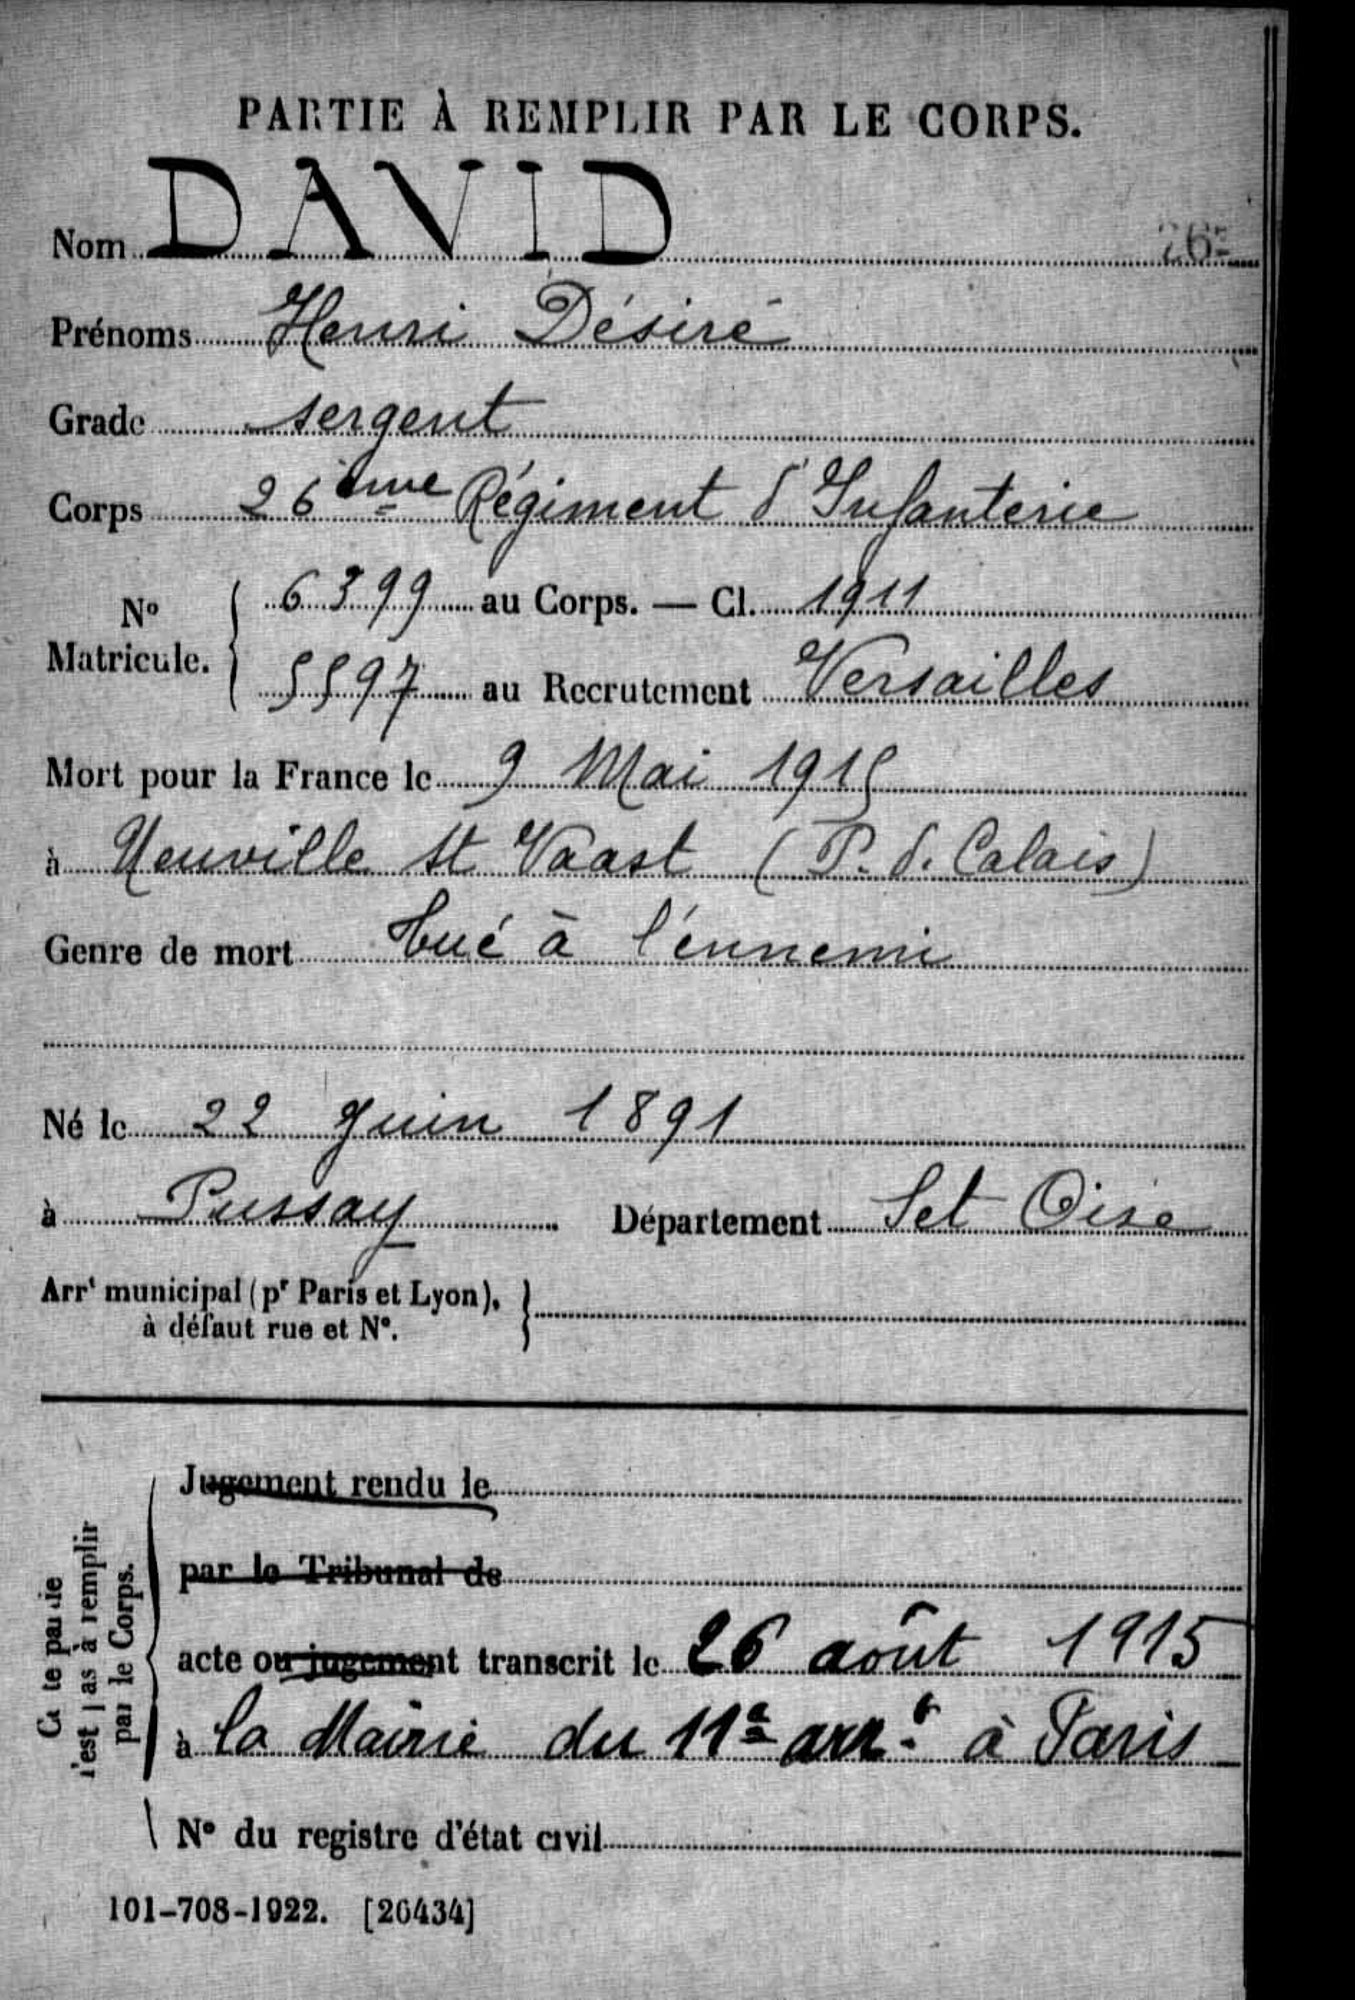 PARTIE À REMPLIR PAR LE CORPS.
Nom DAVID
Prénoms Henri Désiré
Grade sergent
Corps 26ème Régiment d'Infanterie
N° Matricule. { 6399 au Corps. — Cl. 1911
5597 au Recrutement Versailles
Mort pour la France le 9 Mai 1915
à Neuville St Vaast (P. d. Calais)
Genre de mort tué à l'ennemi
Né le 22 Juin 1891
à Pussay Département S et Oise
Arrt municipal (pr Paris et Lyon), à défaut rue et N°. }
Jugement rendu le
par le Tribunal de
acte ou jugement transcrit le 26 août 1915
à la Mairie du 11e arrt à Paris
N° du registre d'état civil
Cette partie
n'est pas à remplir
par le Corps.
101-708-1922. [26434]